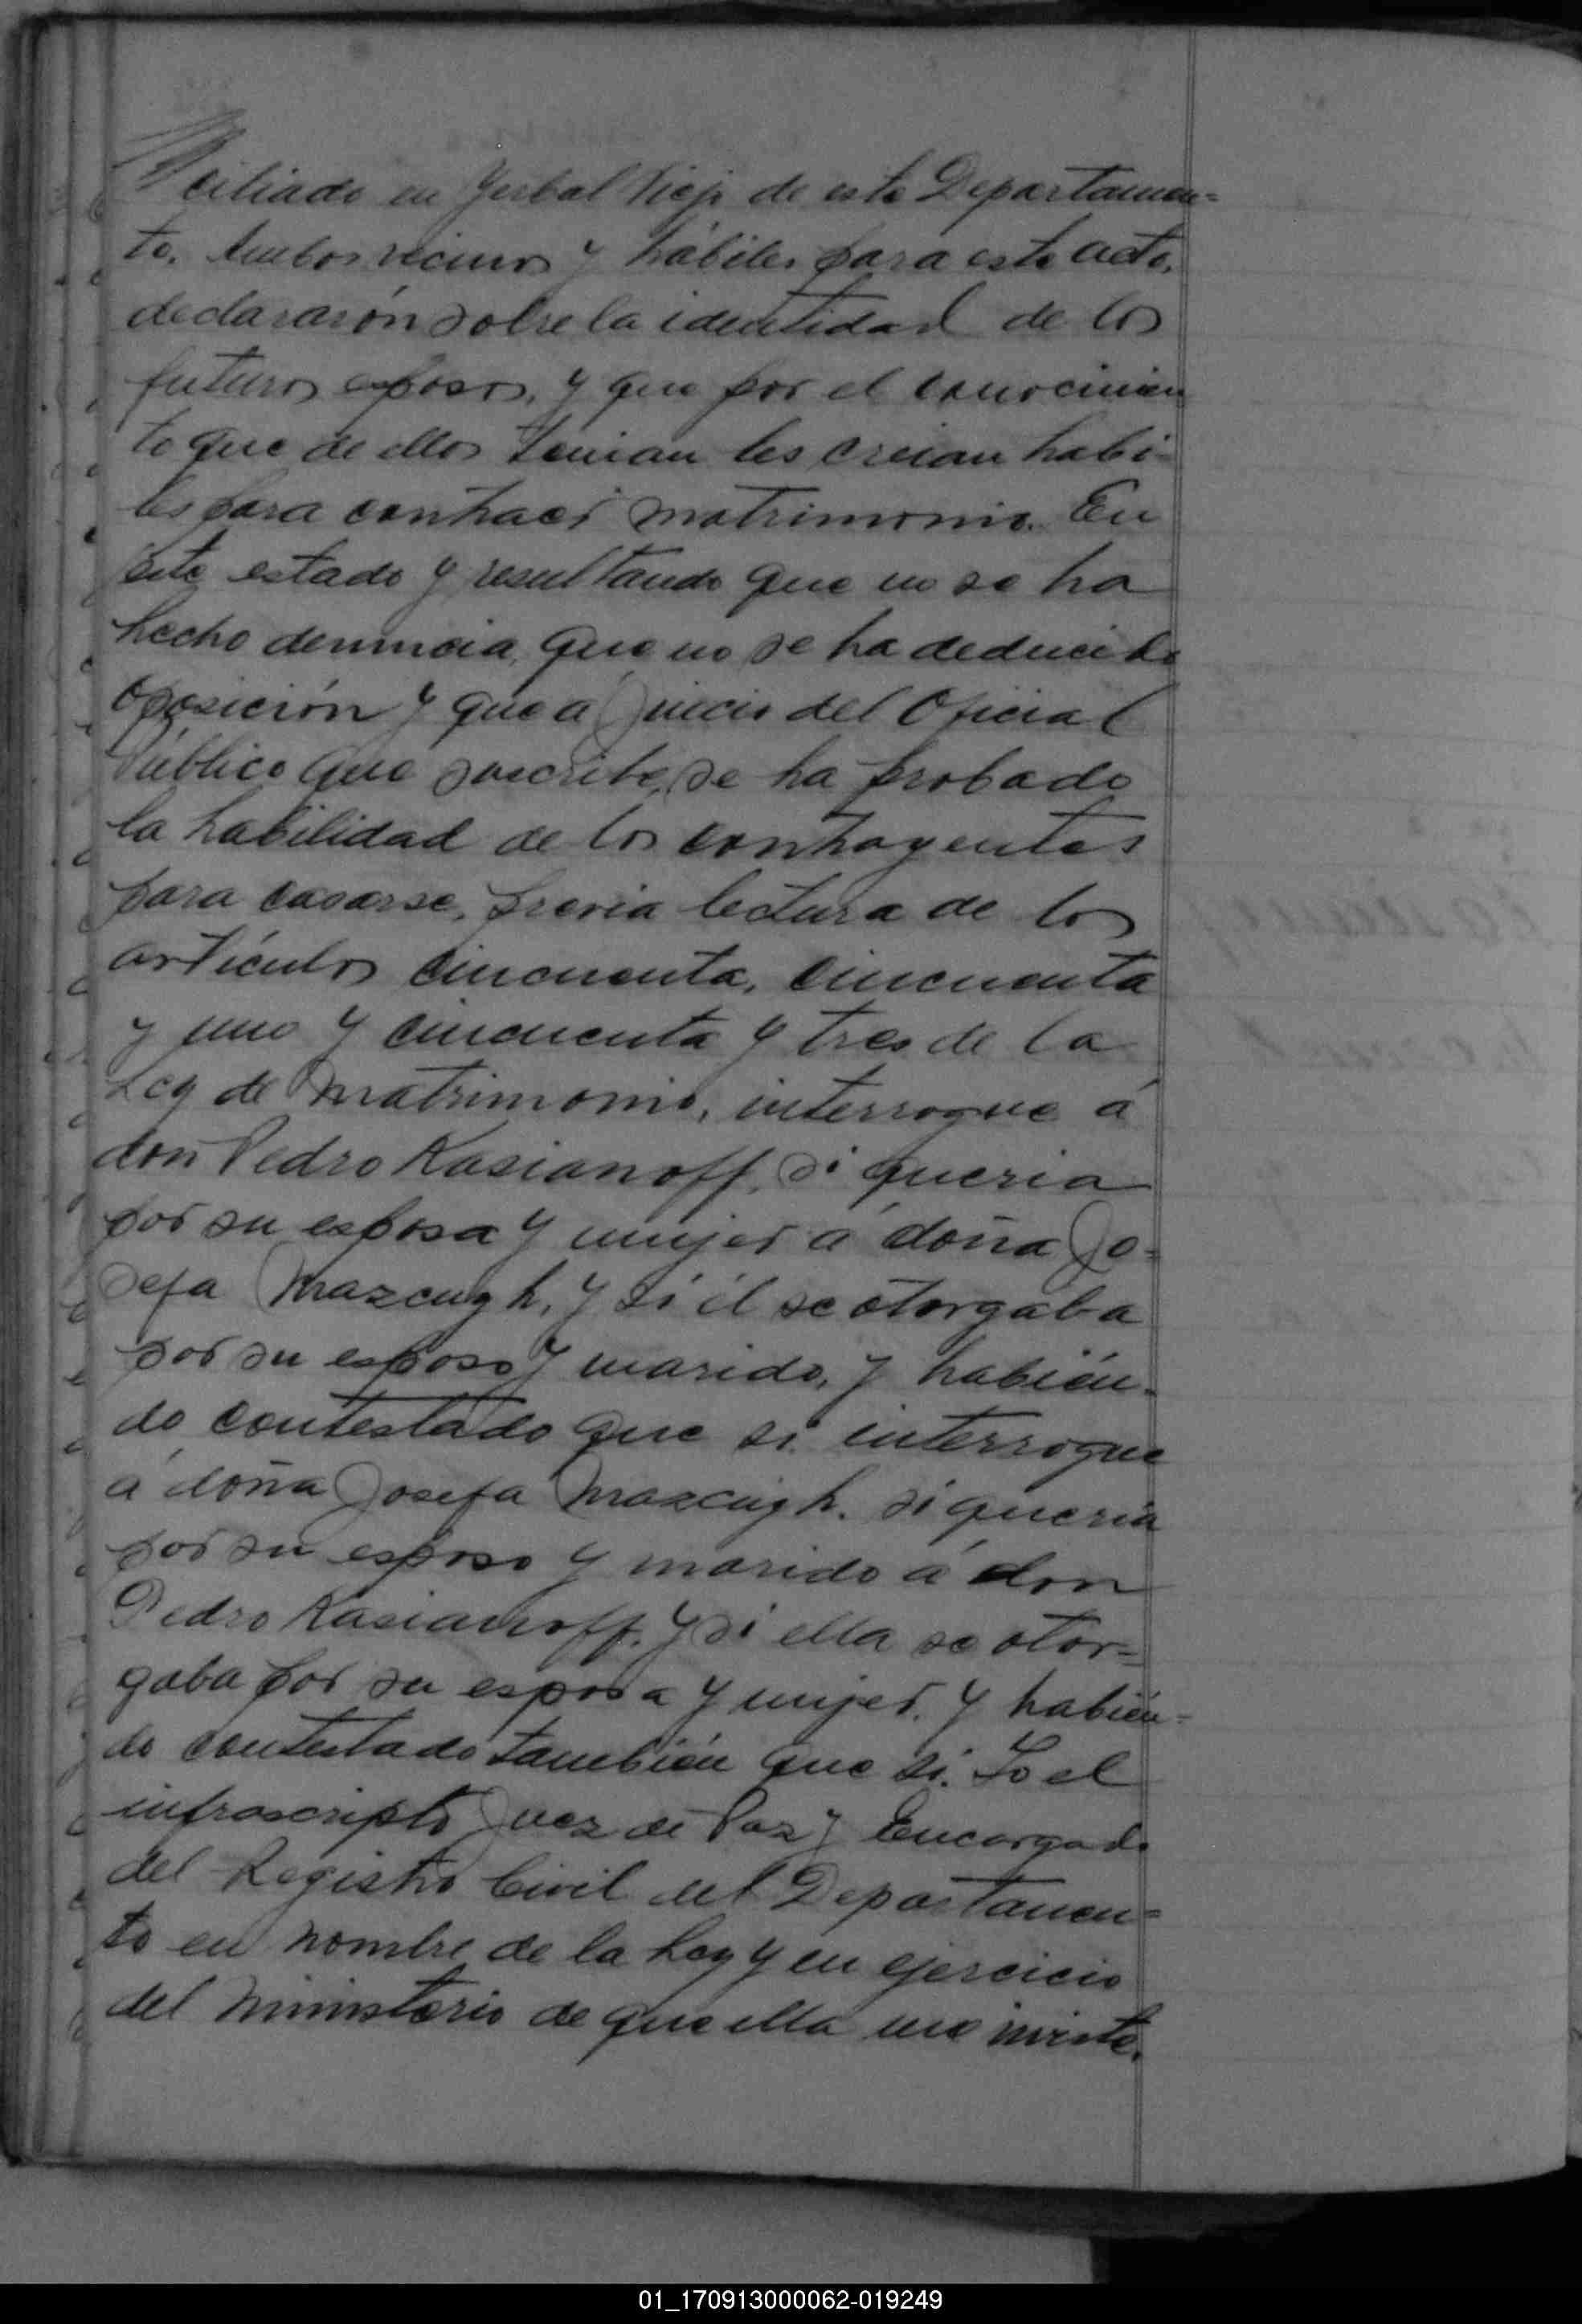 ciliado en Yerbal Viejo de este Departamen=
to. Ambos vecinos y hábiles para este acto,
declararón sobre la identidad de los
futuros esposos, y que por el conocimien
to que de ellos tenian les creian habi-
les para contraer matrimonio. En
este estado y resultando que no se ha
hecho denuncia, que no se ha deducido
oposición y que a juicio del Oficial
Público que suscribe, se ha probado
la habilidad de los contrayentes
para casarse, previa lectura de los
artículos cincuenta, cincuenta
y uno y cincuenta y tres de la
Ley de Matrimonio, interrogue á
don Pedro Kasianoff, si queria
por su esposa y mujer á doña Jo=
sefa Mazcugh, y si él se otorgaba
por su esposo y marido, y habién-
do contestado que si interrogue
á doña Josefa Mazcugh. si queria
por su esposo y marido á don
Pedro Kasianoff, y si ella se otor=
gaba por su esposa y mujer. y habién=
do contestado también que si. Yo el
infrascripto Juez de Paz y Encargado
del Registro Civil del Departamen=
to en nombre de la Ley y en ejercicio
del ministerio de que ella me inviste,
01_170913000062-019249